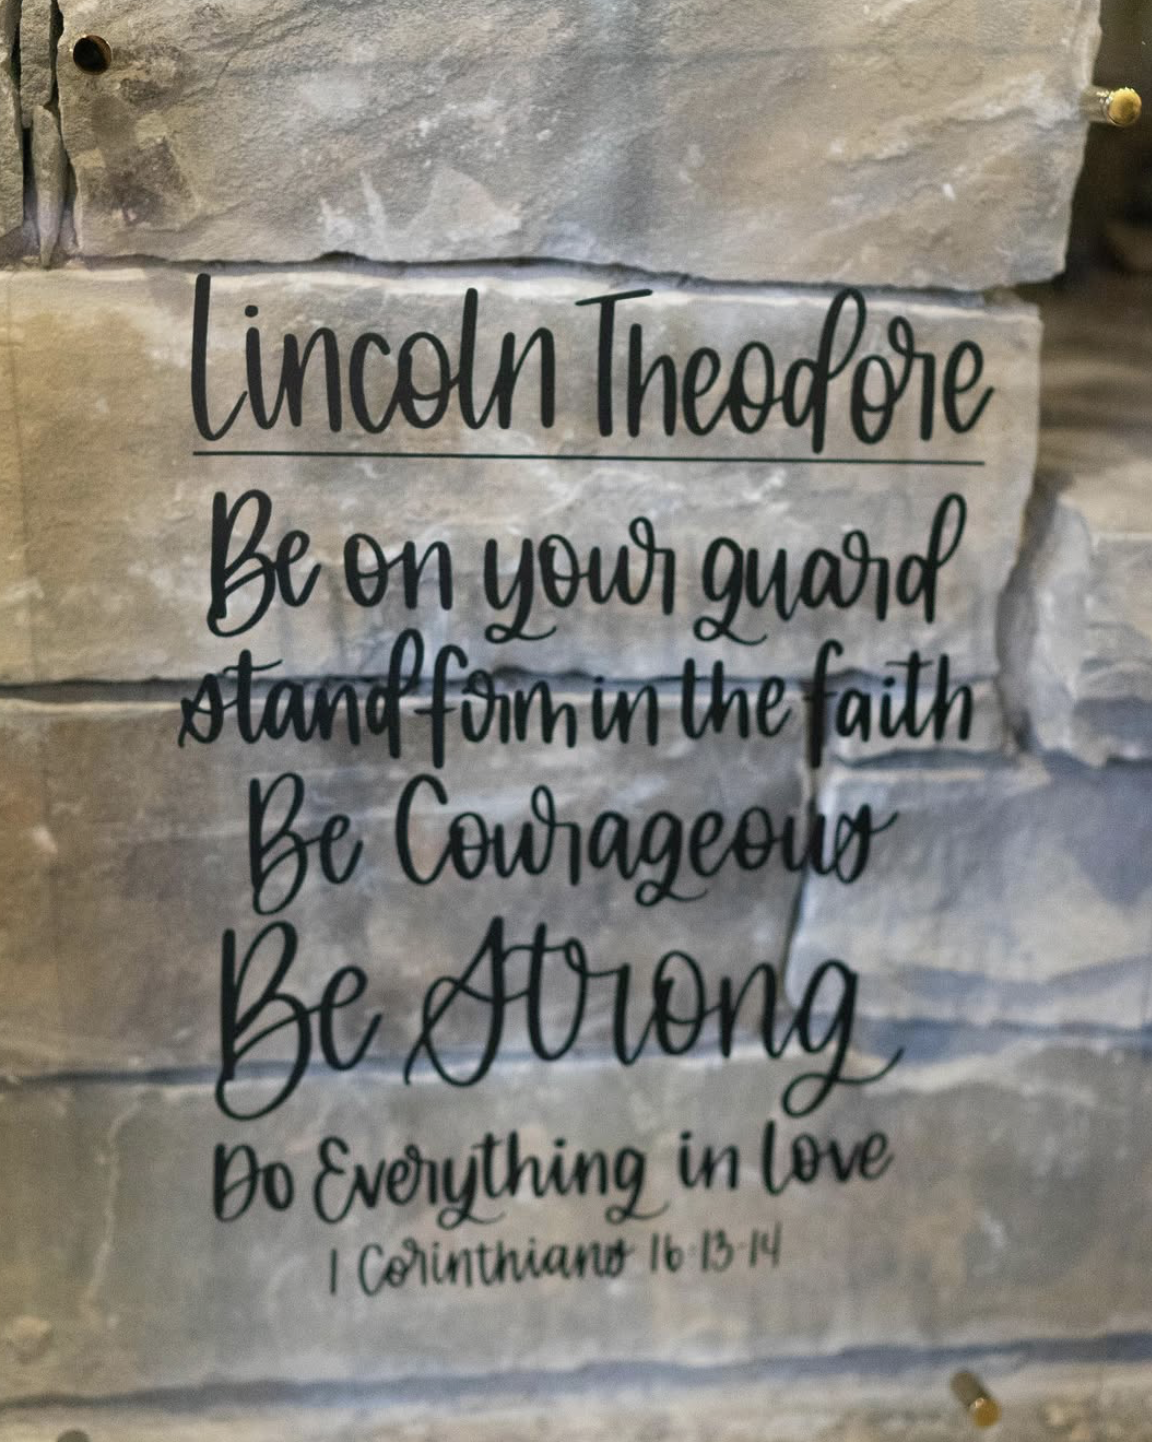 Lincoln Theodore
Be on your guard
stand firm in the faith
Be Courageous
Be Strong
Do Everything in love
1 Corinthians 16:13-14